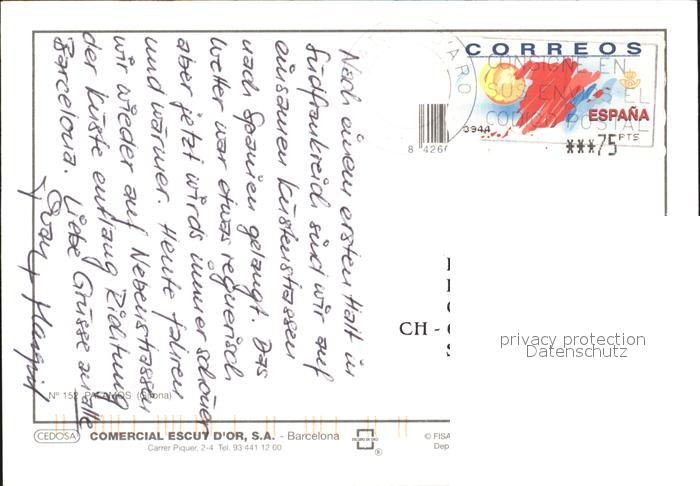 Nach einem ersten Halt in
Südfrankreich sind wir auf
einsamen Küstenstrassen
nach Spanien gelangt. Das
Wetter war etwas regnerisch
aber jetzt wirds immer schöner
und wärmer. Heute fahren
wir wieder auf Nebenstrassen
der Küste entlang Richtung
Barcelona. Liebe Grüsse an alle
CORREOS
CONSIGNE EN
SUS ENVIOS EL
CODIGO POSTAL
ESPAÑA
3944
PTS
***75
8 426
CH -
privacy protection
Datenschutz
Nº 152 PALAMÓS (Girona)
CEDOSA
COMERCIAL ESCUT D'OR, S.A. - Barcelona
Carrer Piquer, 2-4 Tel. 93 441 12 00
© FISA
Dep